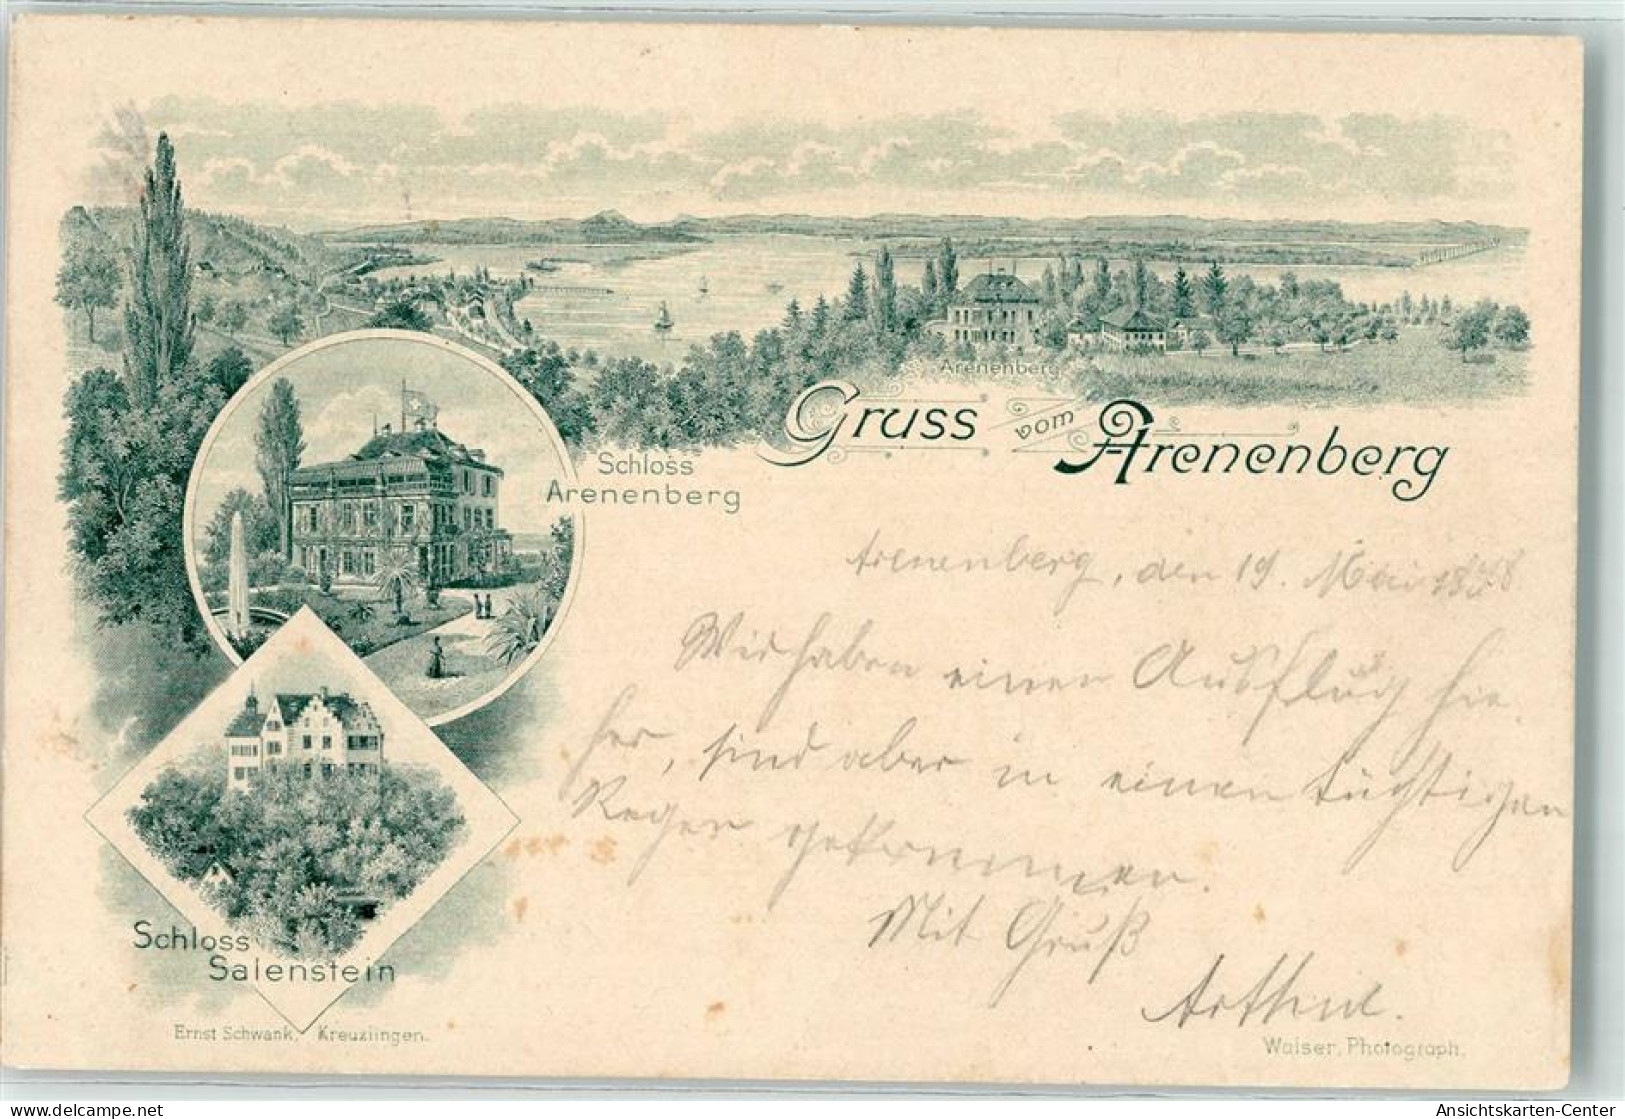 Arenenberg
Gruss vom Arenenberg
Schloss
Arenenberg
Arenenberg, den 19. Mai 1898
Wir haben einen Ausflug hie-
her, sind aber in einen tüchtigen
Regen gekommen.
Mit Gruß
Schloss
Salenstein
Ernst Schwank, Kreuzlingen.
Waiser, Photograph.
delcampe.net
Ansichtskarten-Center